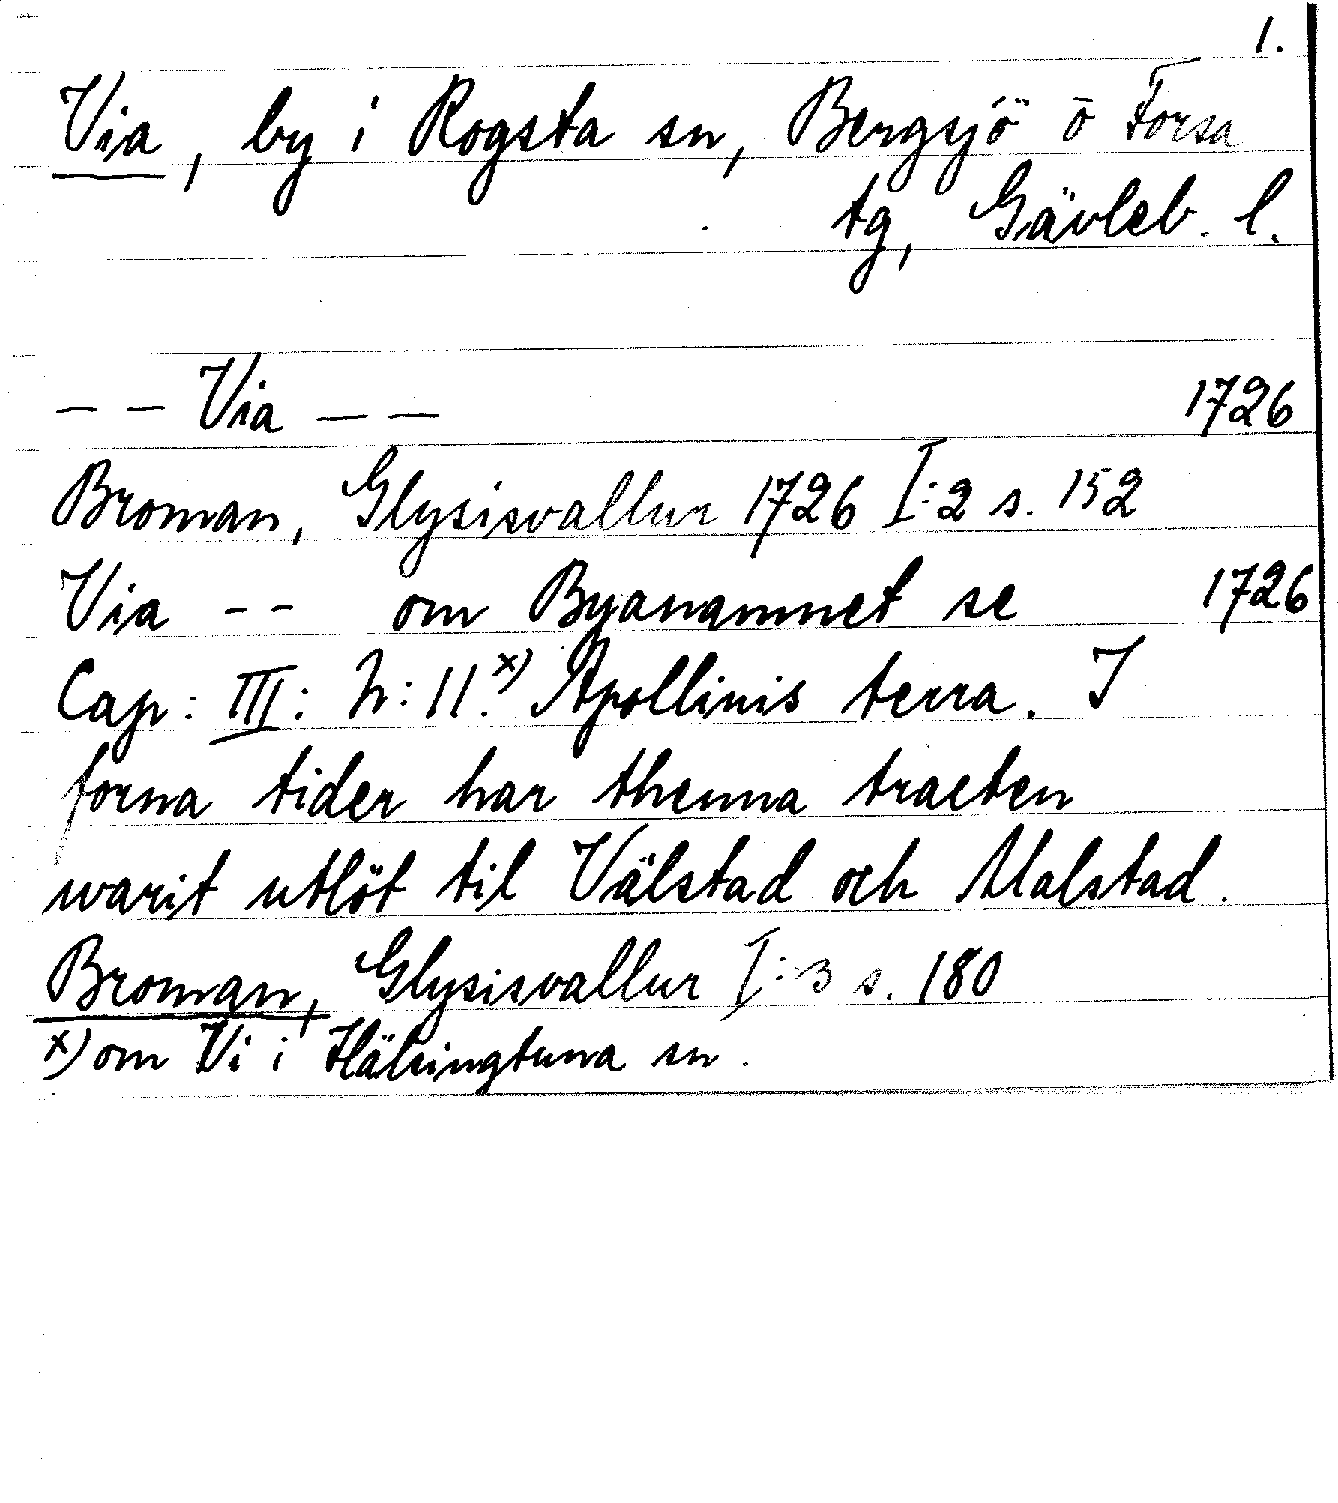 1.
Via, by i Rogsta sn, Bergsjö o Forsa
tg, Gävleb. l.
– – Via – – 1726
Broman, Glysisvallur 1726 I:2 s. 152
Via -- om Byanamnet se 1726
Cap: III: h: 11.x) Apollinis terra. I
forna tider har thenna tracten
warit utlöt til Välstad och Malstad.
Broman, Glysisvallur I:3 s. 180
x) om Vi i Hälsingtuna sn.